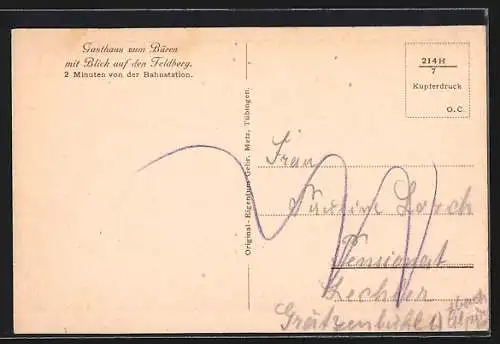 Gasthaus zum Bären
mit Blick auf den Feldberg.
2 Minuten von der Bahnstation.
Original-Eigentum Gebr. Metz, Tübingen.
214H
7
Kupferdruck
O.C.
Frau
Lorch
Pensionat
Lechler